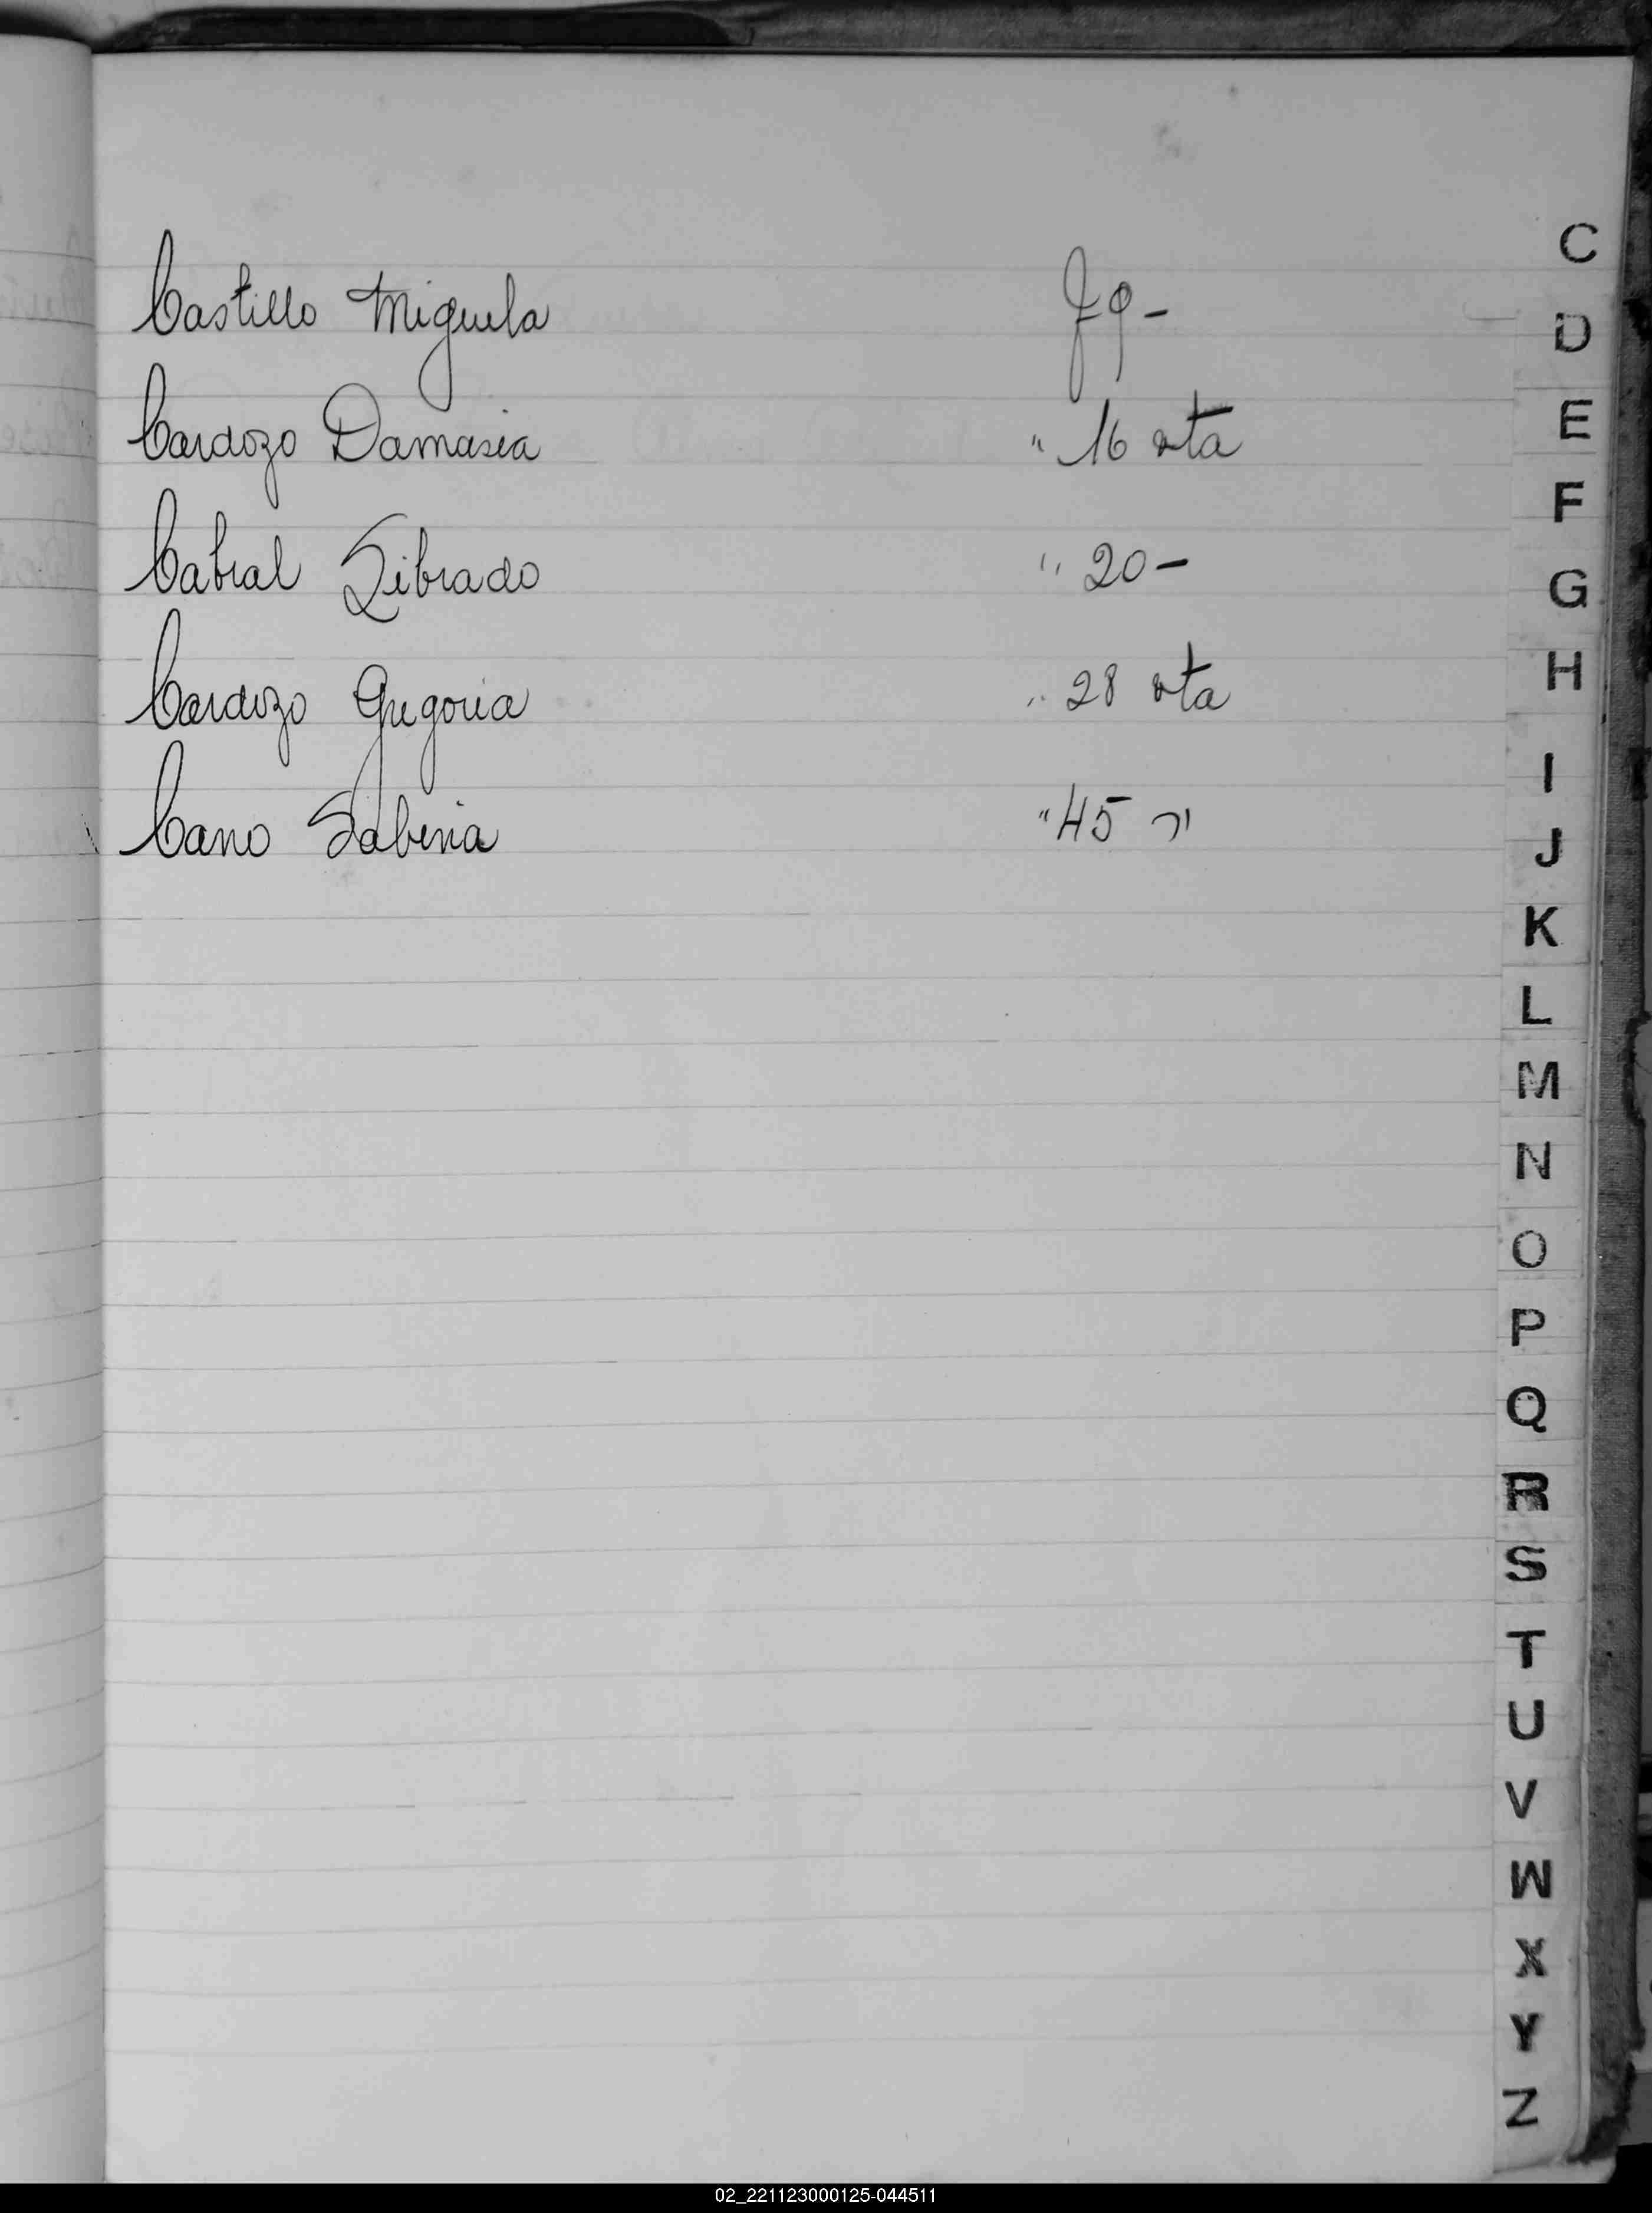 Castillo Miguela f 9 -
Cardozo Damasia " 16 vta
Cabral Librado " 20 -
Cardozo Gregoria " 28 vta
Cano Sabina " 45 "
C
D
E
F
G
H
I
J
K
L
M
N
O
P
Q
R
S
T
U
V
W
X
Y
Z
02_221123000125-044511